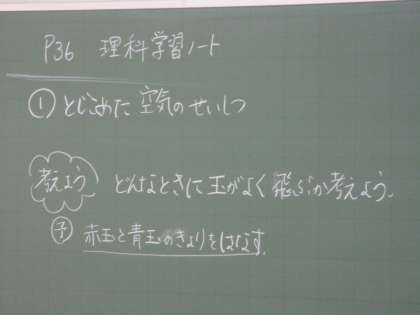 P36 理科学習ノート
① とじこめた 空気のせいしつ
考えよう どんなときに玉がよく飛ぶか考えよう。
予 赤玉と青玉のきょりをはなす。